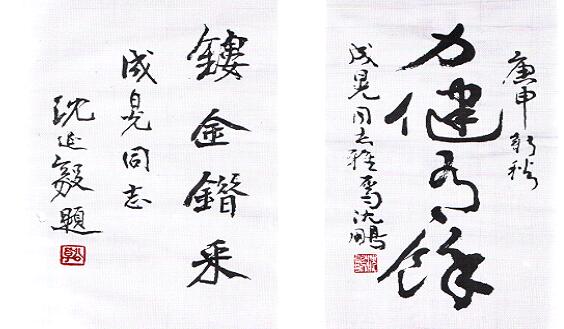 庚申新秋
力健有餘
成晃同志雅屬沈鵬
鏤金錯采
成晃同志
沈延毅題